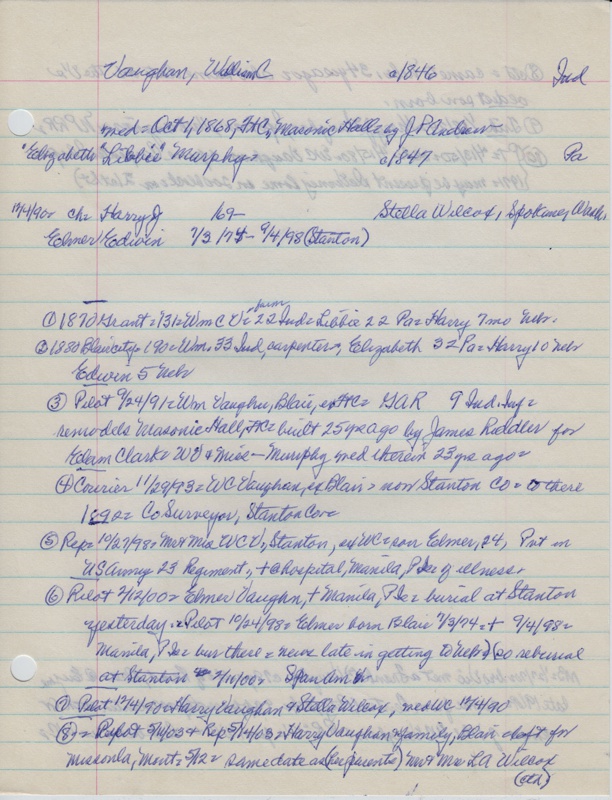 Vaughan, William C. a1846 Ind
med = Oct 1, 1868, FtC, Masonic Hall = by J P
"Elizabeth "Libbie" Murphy = a1847 Pa
12/4/90 = ch = Harry J 169 - Stella Wilcox, Spokane, Wash,
Elmer Edwin 7/3/74 - 9/4/98 (Stanton)
① 1870 Grant = 131 = Wm C V = farm 22 Ind = Libbie 22 Pa = Harry 7mo Nebr.
② 1880 Blair city = 190 = Wm. 33 Ind, carpenter =, Elizabeth 32 Pa = Harry 10 Nebr
Edwin 5 Nebr
③ Pilot 9/24/91 = Wm Vaughn, Blair, ex FtC = GAR 9 Ind. Inf =
remodels Masonic Hall, FtC = built 25 yrs ago by James Riddler for
Adam Clark = WV & Miss - Murphy med therein 23 yrs ago =
④ Courier 11/29/93 = WC Vaughan, ex Blair > now Stanton Co = to there
1890 = Co Surveyor, Stanton Co =
⑤ Rep = 10/27/98 = Mr & Mrs WCV, Stanton, ex WC = son Elmer, 24, Pvt in
US Army 23 Regiment, + @ hospital, Manila, P Is = of illness.
⑥ Pilot 2/12/00 = Elmer Vaughn, + Manila, P Is = burial at Stanton
yesterday = Pilot 10/24/98 = Elmer born Blair 7/3/74 = + 9/4/98 =
Manila, P Is = bur there = news late in getting to Nebr) (so reburial
at Stanton 2/11/00 = Span Am
⑦ Pilot 12/4/90 = Harry Vaughan & Stella Wilcox, med WC 12/4/90
⑧ = Pilot 5/14/03 + Rep 5/14/03 = Harry Vaughan & family, Blair dept for
Missoula, Mont = 5/12 = same date as (her parents) Mr & Mrs LA Wilcox